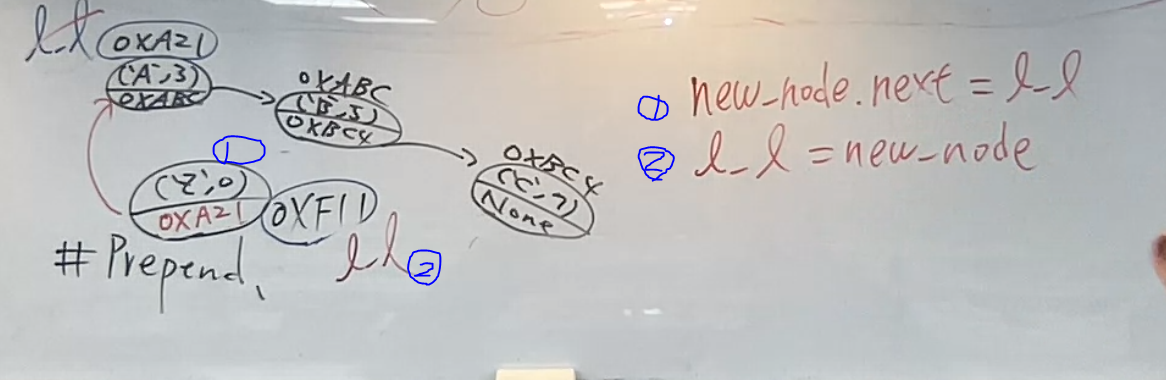 l_l 0XA21
('A',3)
0XABC
0XABC
('B',5)
0XBC4
0XBC4
('C',7)
None
①
('Z',0)
0XA21
0XF1D
ll ②
#Prepend、
① new_node.next = l_l
② l_l = new_node